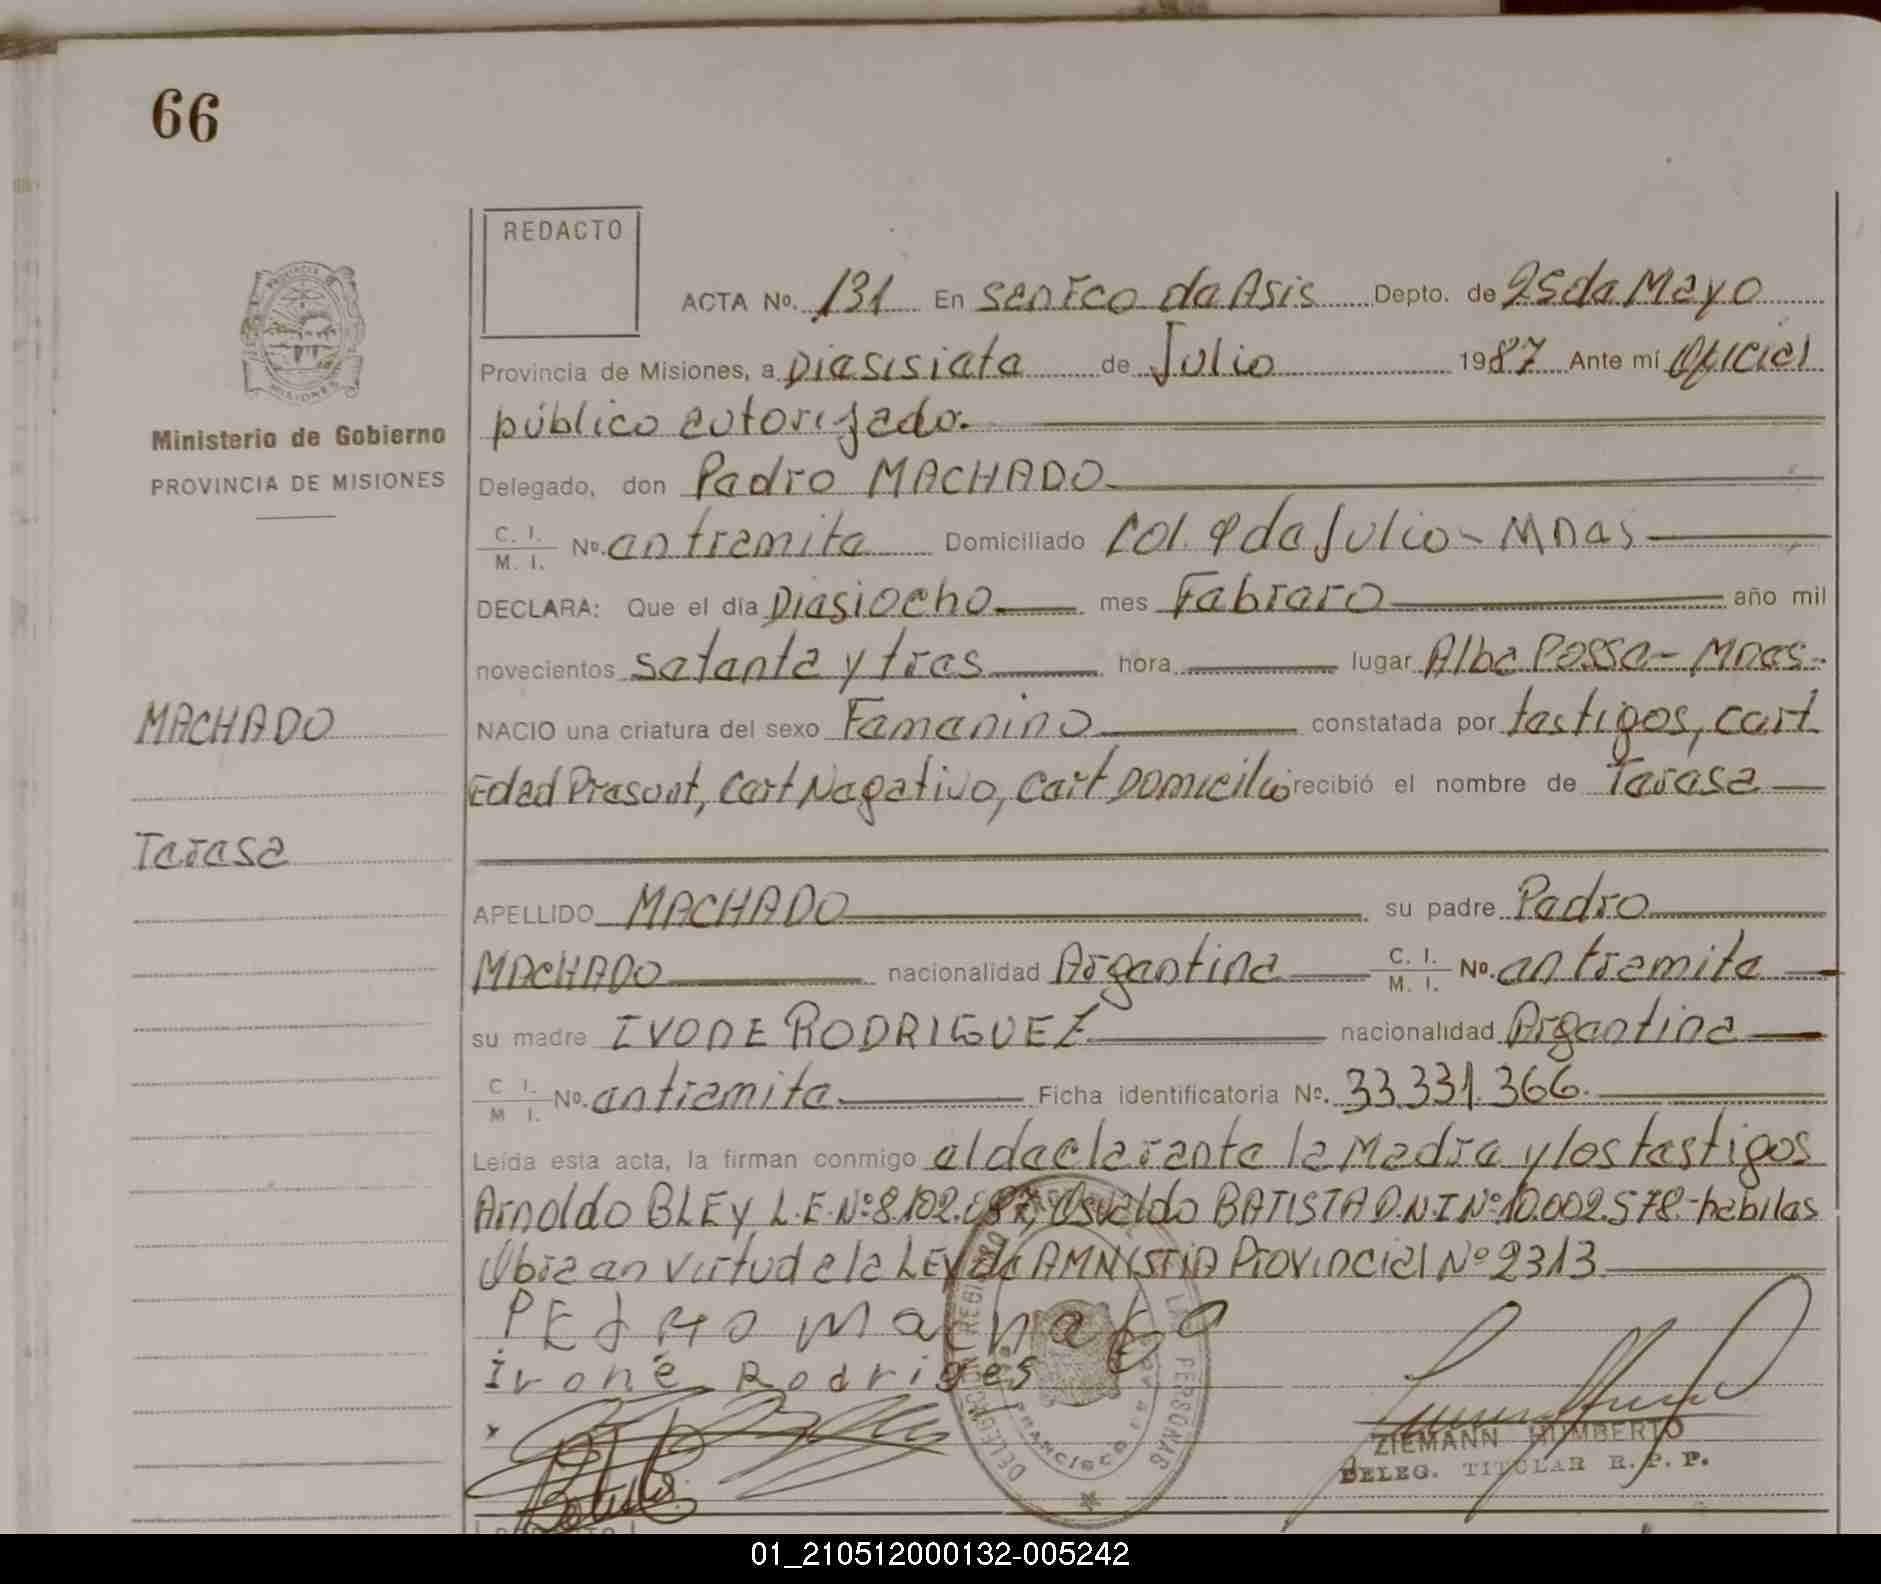 66
REDACTO
ACTA No. 131 En San Fco de Asis Depto. de 25 de Mayo
Provincia de Misiones, a Diesisiete de Julio 1987 Ante mí Oficial
público autorizado.
Ministerio de Gobierno
PROVINCIA DE MISIONES
Delegado, don Pedro MACHADO
C. I. M. I. No. en tramite Domiciliado Col. 9 de Julio - Mnes
DECLARA: Que el día Diesiocho mes Febrero año mil
novecientos setenta y tres hora lugar Alba Posse - Mnes.
MACHADO
NACIO una criatura del sexo Femenino constatada por testigos, cert
Edad Presunt, Cert Negativo, Cert Domicilio recibió el nombre de Teresa
Teresa
APELLIDO MACHADO su padre Pedro
MACHADO nacionalidad Argentina C. I. M. I. No. en tramite
su madre IVONE RODRIGUEZ nacionalidad Argentina
C I. M I. No. en tramite. Ficha identificatoria No. 33.331.366.
Leída esta acta, la firman conmigo el declarante la Madre y los testigos
Arnoldo BLEY L.E. Nº 8.102. Osvaldo BATISTA D.N.I Nº 10.002.578.- habiles
Obra en virtud a la LEY de AMNISTIA Provincial Nº 2313
PEdRO
Ivone Rodriges
DELEGAC REGI LA PERSONAS
FRANCISCO
ZIEMANN HUMBERTO
DELEG. TITULAR R. P. P.
01_210512000132-005242